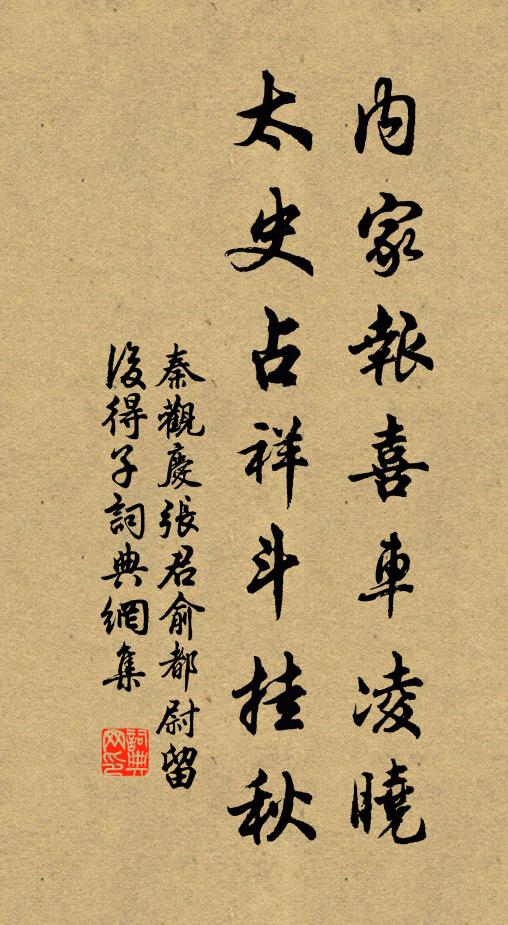 内家報喜車凌曉
太史占祥斗挂秋
秦觀慶張君俞都尉留
後得子詞典網集
詞典
网印